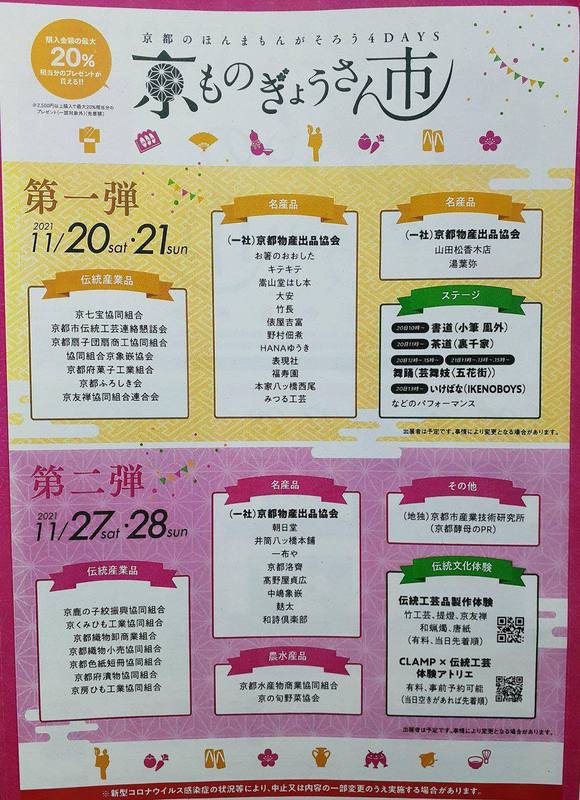 購入金額の最大
20%
相当分のプレゼントが
貰える!!
※2,500円以上購入で最大20%相当分の
プレゼント(一部対象外)(先着順)
京都のほんまもんがそろう4DAYS
京ものぎょうさん市
第一弾
2021
11/20sat・21sun
伝統産業品
京七宝協同組合
京都市伝統工芸連絡懇話会
京都扇子団扇商工協同組合
協同組合京象嵌協会
京都府菓子工業組合
京都ふろしき会
京友禅協同組合連合会
名産品
(一社)京都物産出品協会
お箸のおおした
キテキテ
嵩山堂はし本
大安
竹長
俵屋吉富
野村佃煮
HANAゆうき
表現社
福寿園
本家八ッ橋西尾
みつる工芸
名産品
(一社)京都物産出品協会
山田松香木店
湯葉弥
ステージ
20日10時〜 書道(小筆 凰外)
20日11時〜 茶道(裏千家)
20日12時〜、15時〜 21日11時〜、13時〜、15時〜
舞踊(芸舞妓〈五花街〉)
20日13時〜 いけばな(IKENOBOYS)
などのパフォーマンス
出展者は予定です。事情により変更となる場合があります。
第二弾
2021
11/27sat・28sun
伝統産業品
京鹿の子絞振興協同組合
京くみひも工業協同組合
京都織物卸商業組合
京都織物小売協同組合
京都色紙短冊協同組合
京都府漬物協同組合
京房ひも工業協同組合
名産品
(一社)京都物産出品協会
朝日堂
井筒八ッ橋本舗
一布や
京都洛齊
髙野屋貞広
中嶋象嵌
麩太
和詩倶楽部
農水産品
京都水産物商業協同組合
京の旬野菜協会
その他
(地独)京都市産業技術研究所
(京都酵母のPR)
伝統文化体験
伝統工芸品製作体験
竹工芸、提燈、京友禅
和蝋燭、唐紙
(有料、当日先着順)
CLAMP × 伝統工芸
体験アトリエ
有料、事前予約可能
(当日空きがあれば先着順)
出展者は予定です。事情により変更となる場合があります。
※新型コロナウイルス感染症の状況等により、中止又は内容の一部変更のうえ実施する場合があります。